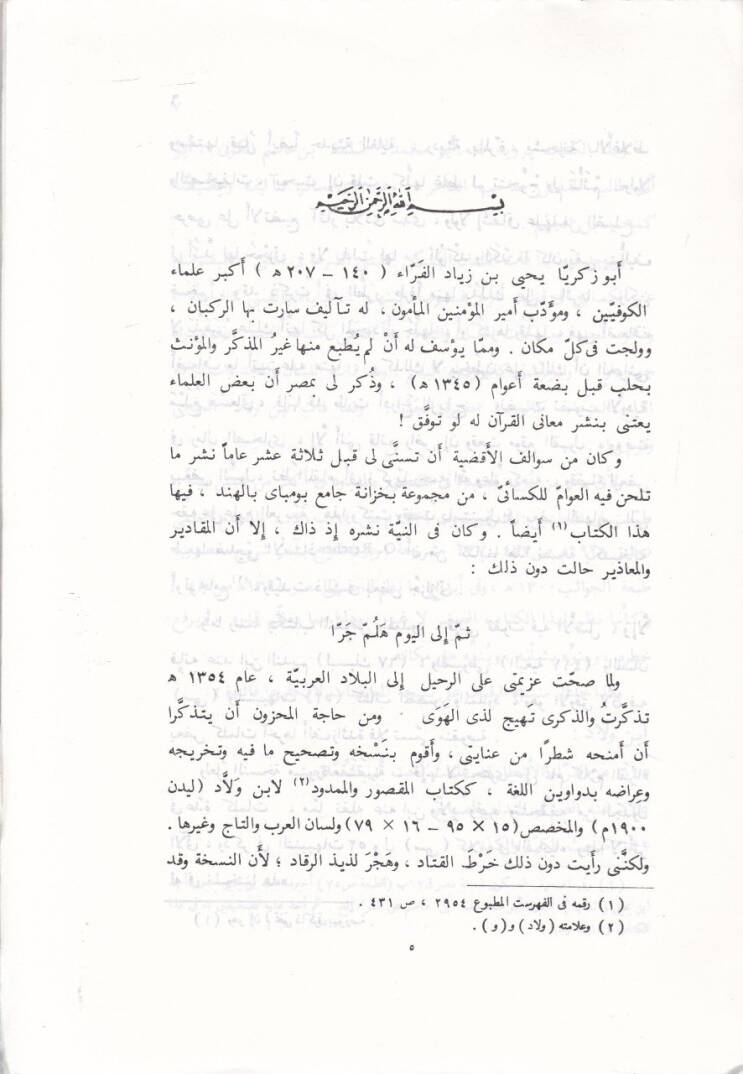 بسم الله الرحمن الرحيم
أبو زكريّا يحيي بن زياد الفَرّاء ( ١٤٠ – ٢٠٧ ﻫ ) أكبر علماء
الكوفيّين ، ومؤدّب أمير المؤمنين المأمون ، له تآليف سارت بها الركبان ،
وولجت فى كلّ مكان . ومما يؤسف له أنْ لم يُطبع منها غيرُ المذكَّر والمؤنث
بحلب قبل بضعة أعوام (١٣٤٥ ﻫ) ، وذُكر لى بمصر أن بعض العلماء
يعتنى بنشر معانى القرآن له لو توفَّق !
وكان من سوالف الأقضية أن تسنَّى لى قبل ثلاثة عشر عاماً نشر ما
تلحن فيه العوامّ للكسائىّ ، من مجموعة بخزانة جامع بومباى بالهند ، فيها
هذا الكتاب(١) أيضاً . وكان فى النيّة نشره إذ ذاك ، إلا أن المقادير
والمعاذير حالت دون ذلك :
ثمّ إلى اليوم هَلُمّ جَرّا
ولما صحّت عزيمتى على الرحيل إلى البلاد العربيّة ، عام ١٣٥٤ ﻫ
تذكَّرتُ والذكرى تهيج لذى الهَوَى ومن حاجة المحزون أن يتذكَّرا
أن أمنحه شطرًا من عنايتى ، وأقوم بنَسْخه وتصحيح ما فيه وتخريجه
وعِراضه بدواوين اللغة ، ككتاب المقصور والممدود(٢) لابن وَلاَّد (ليدن
١٩٠٠م) والمخصص (١٥ × ٩٥ – ١٦ × ٧٩) ولسان العرب والتاج وغيرها .
ولكنَّنى رأيت دون ذلك خَرْطَ القتاد ، وهَجْرَ لذيذ الرقاد ؛ لأن النسخة وقد
(١) رقمه فى الفهرست المطبوع ٢٩٥٤ ، ص ٤٣١ .
(٢) وعلامته (ولاد) و (و) .
٥